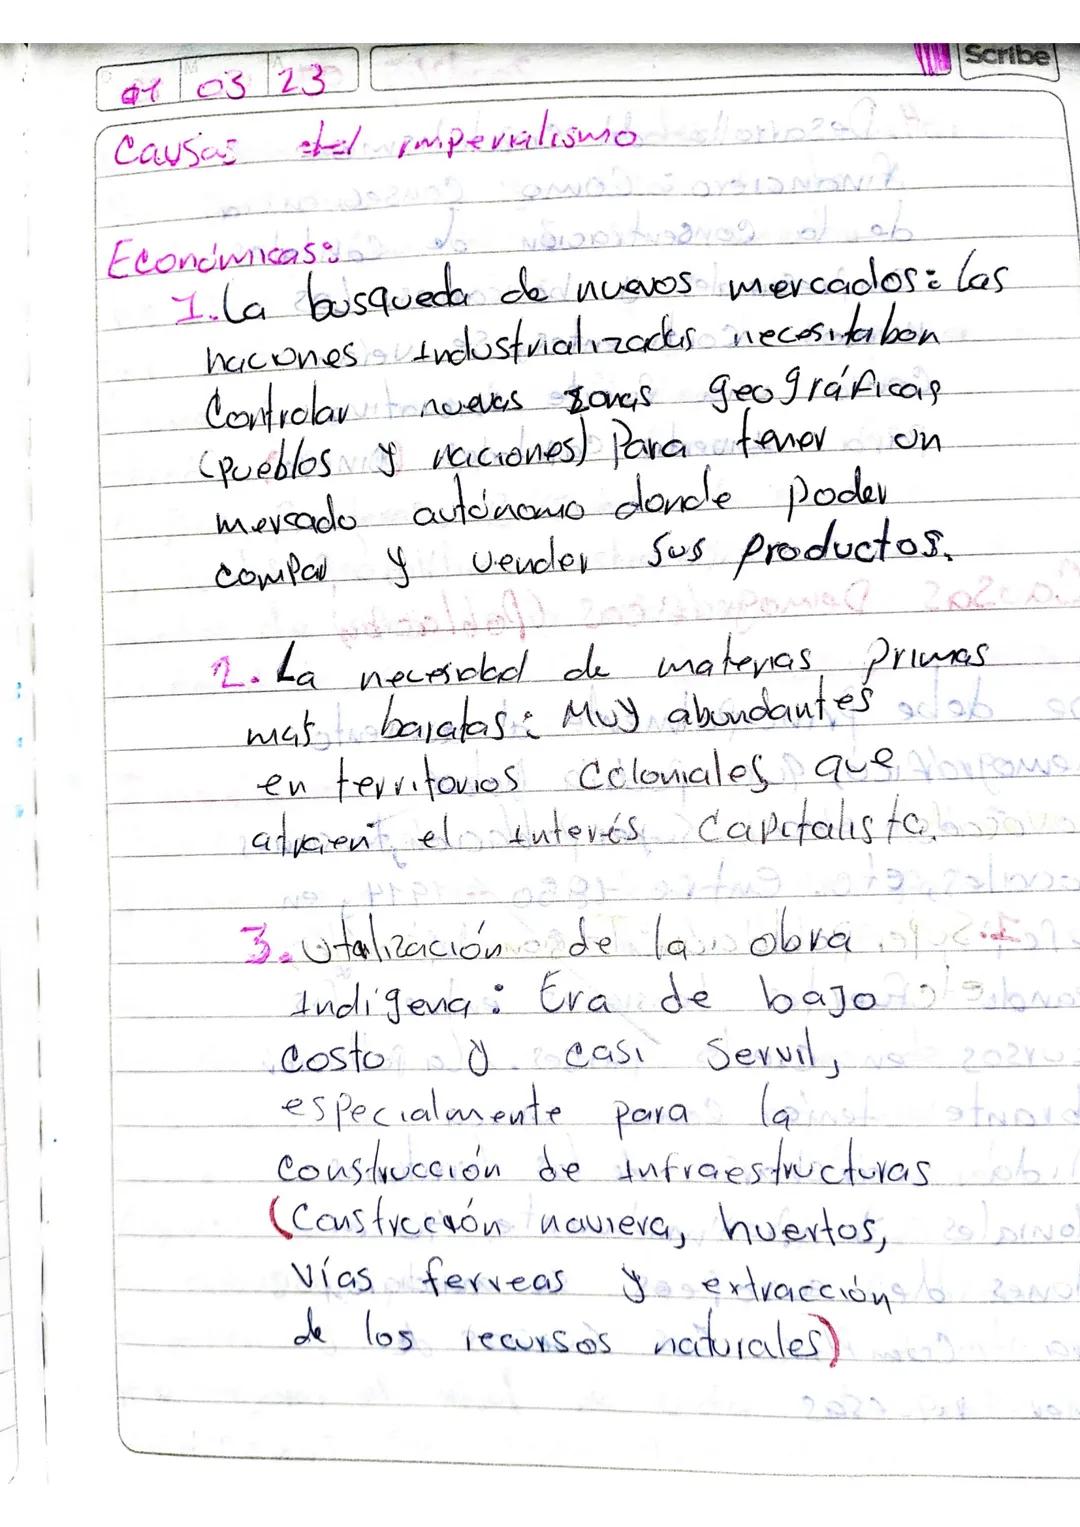 Scribe
01 03 23
Causas del imperialismo
Económicas:
1. La busqueda de nuevos mercados: las
naciones Industrializadas necesitaban
Controlar nuevas zonas geográficas
(pueblos y naciones) Para tener un
mercado autónomo donde poder
compar y vender sus productos.
2. La necesidad de materias primas
mas baratas: Muy abundantes
en territorios Coloniales que
atraien el interés Capitalista.
3. Utalización de la obra
Indígena: Era de bajo
costo y casi servil,
especialmente para la
Construcción de Infraestructuras
(Constrcción naviera, huertos,
Vías ferreas y extracción
de los recursos naturales)